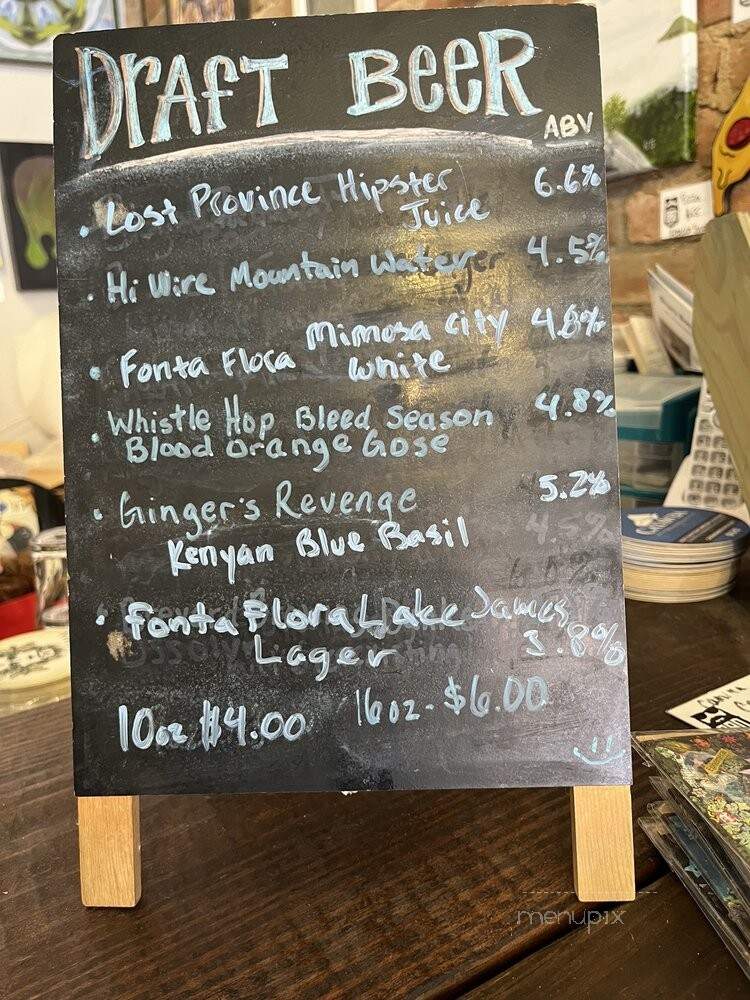 DrAFT BeeR
ABV
• Lost Province Hipster 6.6%
Juice
• Hi Wire Mountain Water 4.5%
Mimosa City
• Fonta Flora White
• Whistle Hop Bleed Season 4.8%
Blood Orange Gose
• Ginger's Revenge 5.2%
Kenyan Blue Basil
4.5%
• Fonta Flora Lake James
Lager 3.8%
10oz $4.00 16oz - $6.00
menupix